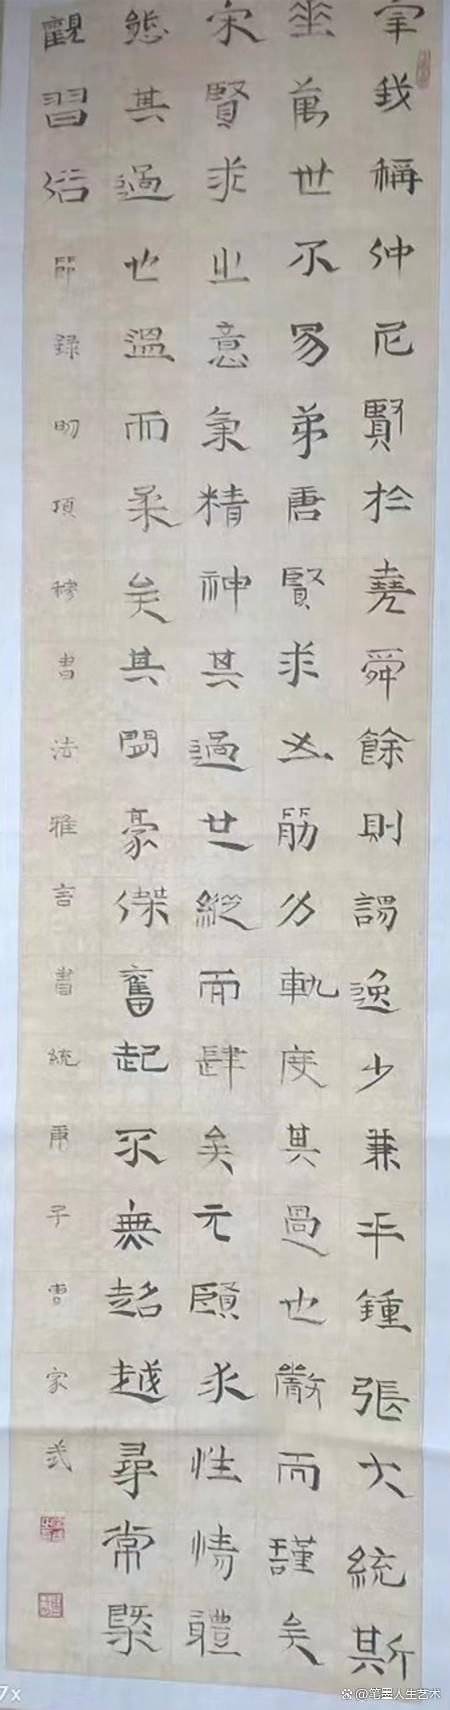 宰我稱仲尼賢於堯舜餘則謂逸少兼乎鍾張大統斯
垂萬世不易第唐賢求之筋力軌度其過也嚴而謹矣
宋賢求之意氣精神其過也縱而肆矣元賢求性情體
態其過也溫而柔矣其間豪傑奮起不無超越尋常槩
觀習俗節錄明項穆書法雅言書統庚子曹家
7x
笔墨人生艺术